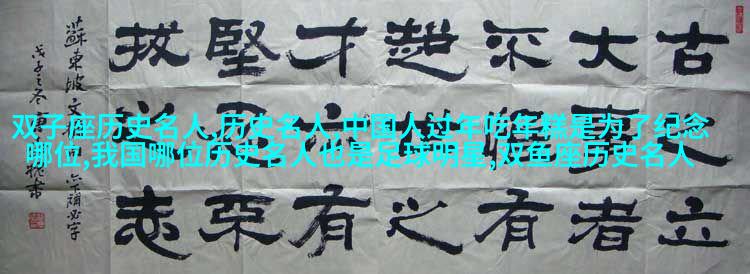 双子座历史名人,历史名人,中国人过年吃年糕是为了纪念
哪位,我国哪位历史名人也是足球明星,双鱼座历史名人
古之立
大事者
不惟有
超世之
才亦有
堅忍不
拔之志
蘇東坡文句 亦下漏必字
戊子之冬